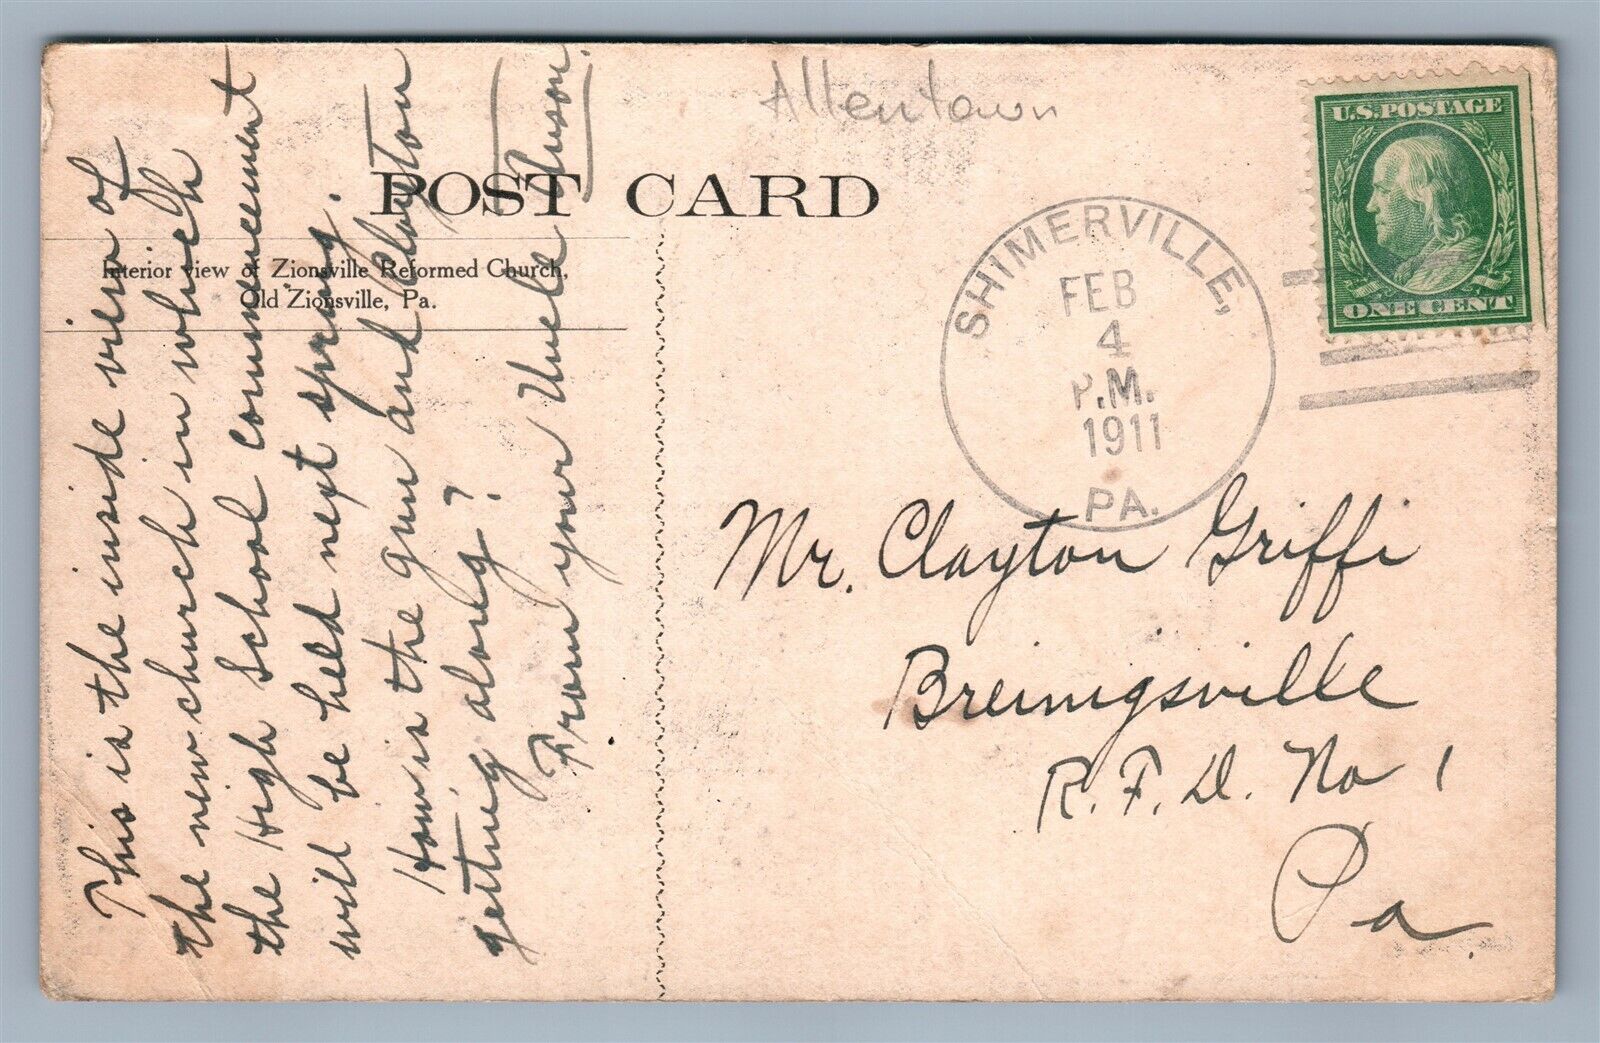 Allentown
U.S. POSTAGE
ONE CENT
POST CARD
Interior view of Zionsville Reformed Church,
Old Zionsville, Pa.
SHIMERVILLE,
FEB
4
P.M.
1911
PA.
This is the inside view of
the new church in which
the High School commencement
will be held next spring.
How is the gun and Clayton
getting along?
From your Uncle
Mr. Clayton Griffi
Breinigsville
R.F.D. No 1
Pa.